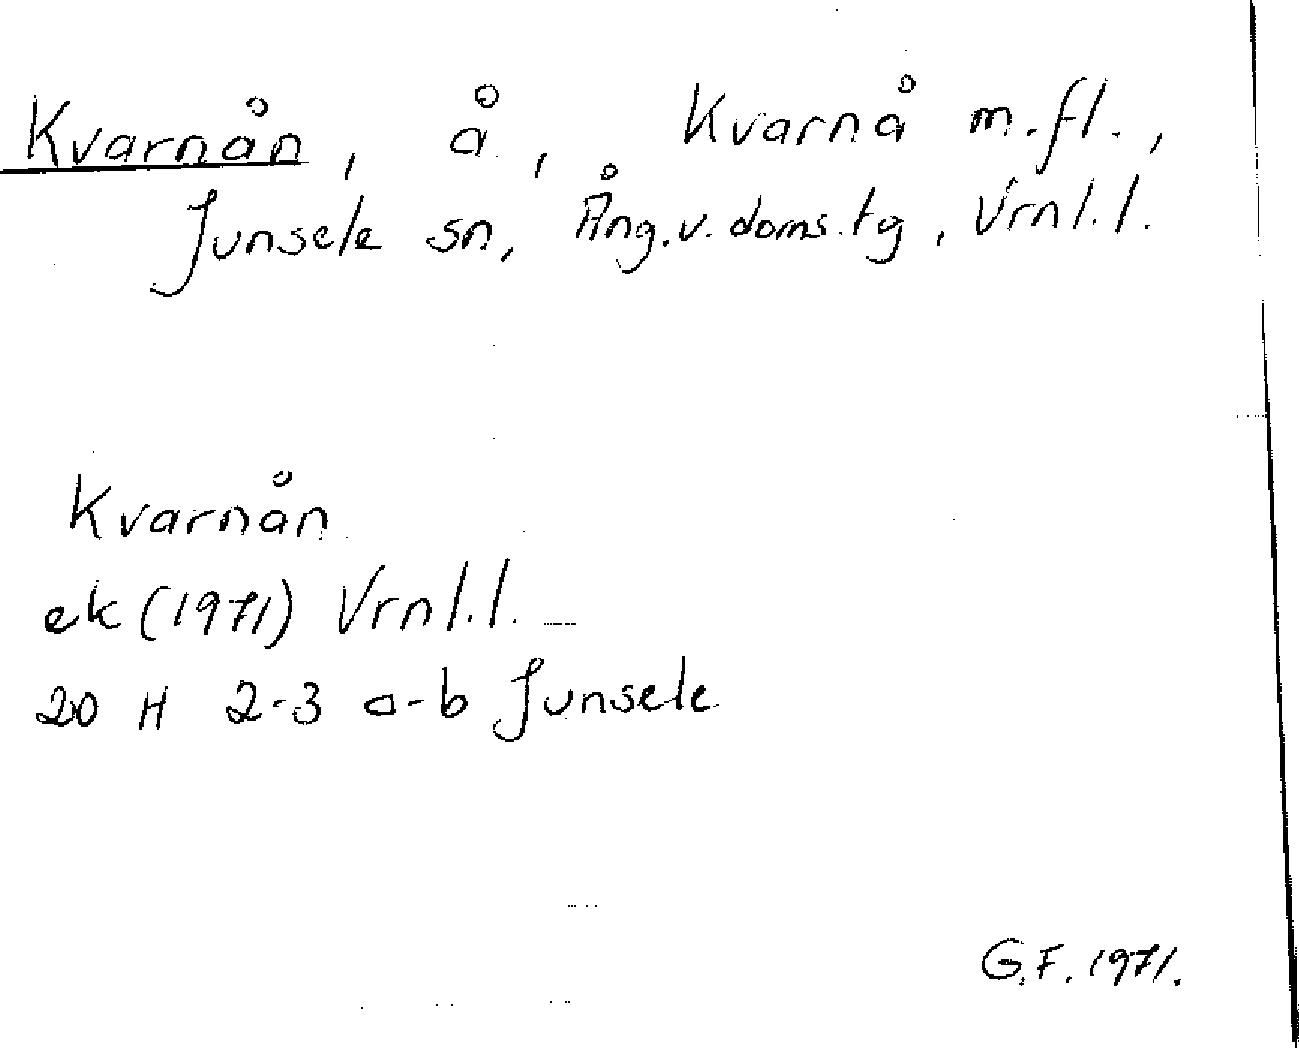 Kvarnån, å, Kvarnå m.fl.,
Junsele sn, Ång.v.doms.tg, Vrnl.l.
Kvarnån
ek (1971) Vrnl.l.
20 H 2-3 a-b Junsele
G.F. 1971.